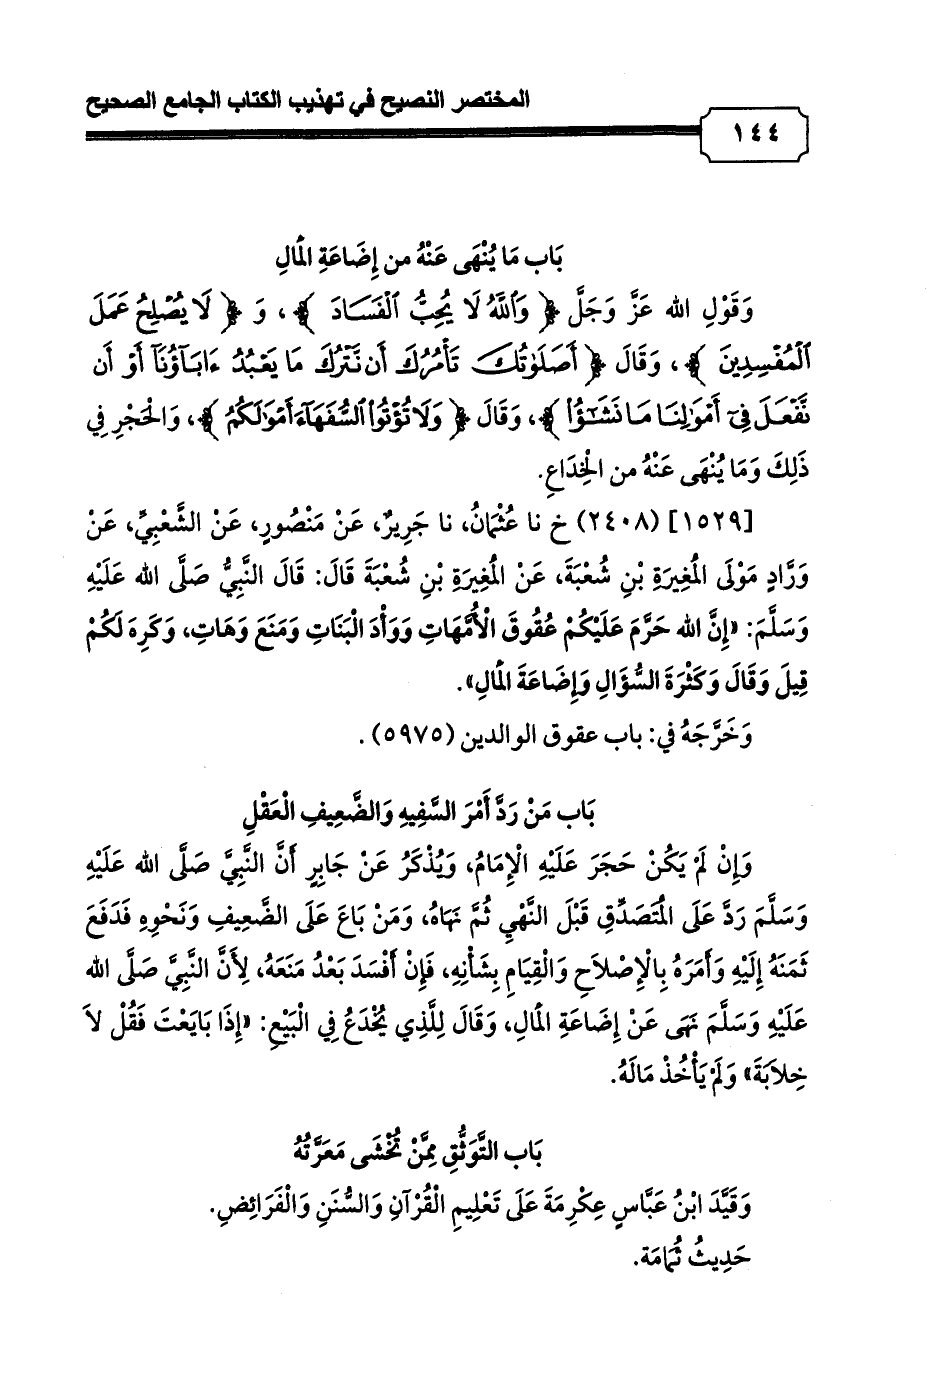 المختصر النصيح في تهذيب الكتاب الجامع الصحيح
١٤٤
بَاب مَا يُنْهَى عَنْهُ من إِضَاعَةِ المْالِ
وَقَوْلِ الله عَزَّ وَجَلَّ ﴿ وَٱللَّهُ لَا يُحِبُّ ٱلْفَسَادَ ﴾، وَ ﴿ لَا يُصْلِحُ عَمَلَ
ٱلْمُفْسِدِينَ ﴾، وَقَالَ ﴿ أَصَلَوٰتُكَ تَأْمُرُكَ أَن نَّتْرُكَ مَا يَعْبُدُ ءَابَآؤُنَآ أَوْ أَن
نَّفْعَلَ فِىٓ أَمْوَٰلِنَا مَا نَشَٰٓؤُا۟ ﴾، وَقَالَ ﴿ وَلَا تُؤْتُوا۟ ٱلسُّفَهَآءَ أَمْوَٰلَكُمُ ﴾، وَالْحَجْرِ فِي
ذَلِكَ وَمَا يُنْهَى عَنْهُ من الْخِدَاعِ.
[١٥٢٩] (٢٤٠٨) خ نا عُثْمَانُ، نا جَرِيرٌ، عَنْ مَنْصُورٍ، عَنْ الشَّعْبِيِّ، عَنْ
وَرَّادٍ مَوْلَى الْمُغِيرَةِ بْنِ شُعْبَةَ، عَنْ الْمُغِيرَةِ بْنِ شُعْبَةَ قَالَ: قَالَ النَّبِيُّ صَلَّى الله عَلَيْهِ
وَسَلَّمَ: «إِنَّ الله حَرَّمَ عَلَيْكُمْ عُقُوقَ الْأُمَّهَاتِ وَوَأْدَ الْبَنَاتِ وَمَنَعَ وَهَاتِ، وَكَرِهَ لَكُمْ
قِيلَ وَقَالَ وَكَثْرَةَ السُّؤَالِ وَإِضَاعَةَ المْالِ».
وَخَرَّجَهُ فِي: باب عقوق الوالدين (٥٩٧٥).
بَاب مَنْ رَدَّ أَمْرَ السَّفِيهِ وَالضَّعِيفِ الْعَقْلِ
وَإِنْ لَمْ يَكُنْ حَجَرَ عَلَيْهِ الْإِمَامُ، وَيُذْكَرُ عَنْ جَابِرٍ أَنَّ النَّبِيَّ صَلَّى الله عَلَيْهِ
وَسَلَّمَ رَدَّ عَلَى الْمُتَصَدِّقِ قَبْلَ النَّهْيِ ثُمَّ نَهَاهُ، وَمَنْ بَاعَ عَلَى الضَّعِيفِ وَنَحْوِهِ فَدَفَعَ
ثَمَنَهُ إِلَيْهِ وَأَمَرَهُ بِالْإِصْلَاحِ وَالْقِيَامِ بِشَأْنِهِ، فَإِنْ أَفْسَدَ بَعْدُ مَنَعَهُ، لِأَنَّ النَّبِيَّ صَلَّى الله
عَلَيْهِ وَسَلَّمَ نَهَى عَنْ إِضَاعَةِ المْالِ، وَقَالَ لِلَّذِي يُخْدَعُ فِي الْبَيْعِ: «إِذَا بَايَعْتَ فَقُلْ لاَ
خِلابَةَ» وَلَمْ يَأْخُذْ مَالَهُ.
بَاب التَّوَثُّقِ مِمَّنْ تُخْشَى مَعَرَّتُهُ
وَقَيَّدَ ابْنُ عَبَّاسٍ عِكْرِمَةَ عَلَى تَعْلِيمِ الْقُرْآنِ وَالسُّنَنِ وَالْفَرَائِضِ.
حَدِيثُ ثُمَامَة.